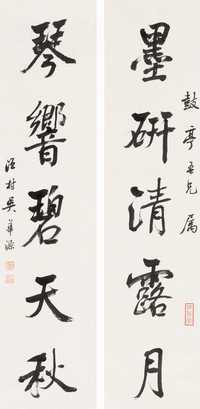 鼓亭吾兄属
墨研清露月
琴響碧天秋
吴華源